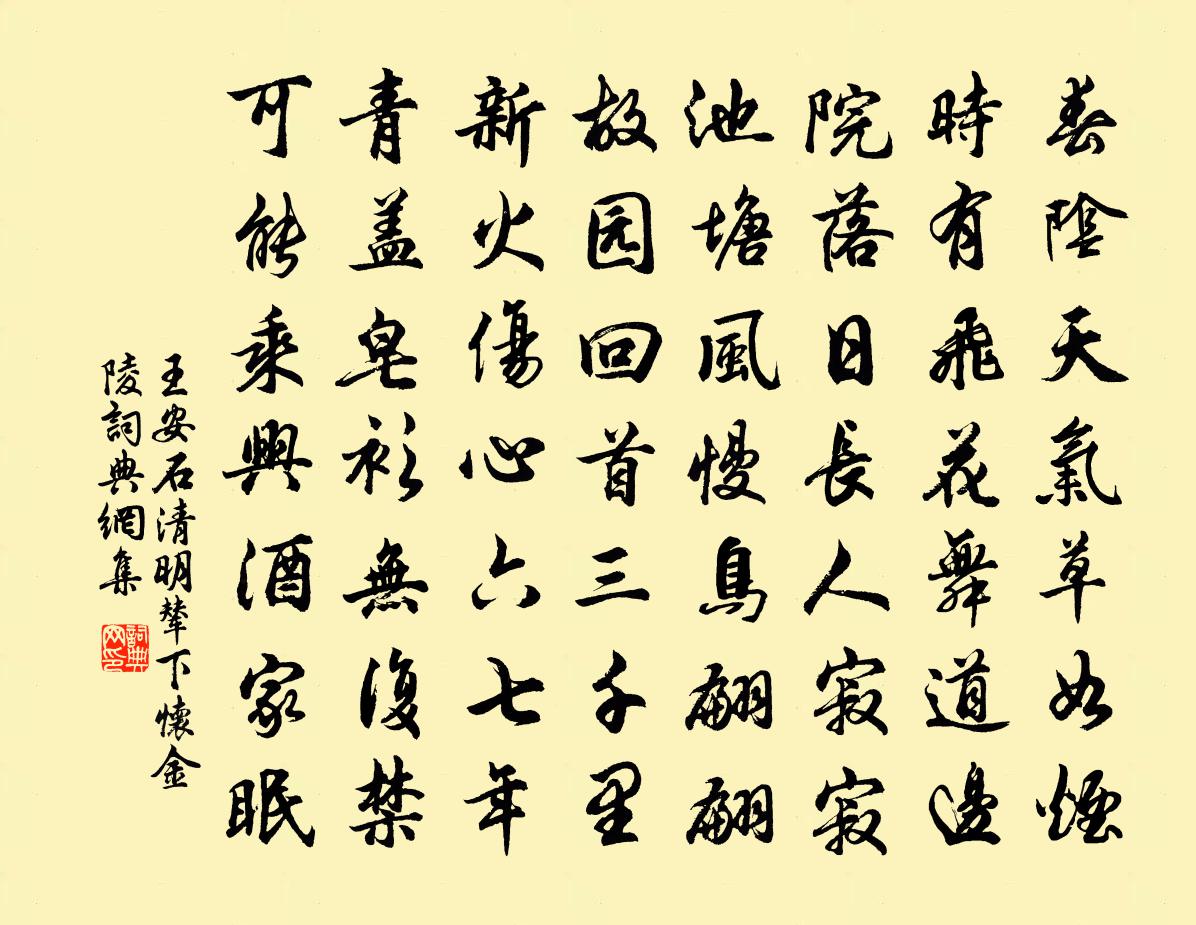 春陰天氣草如煙
時有飛花舞道邊
院落日長人寂寂
池塘風慢鳥翩翩
故园回首三千里
新火傷心六七年
青盖皂衫無復禁
可能乘興酒家眠
王安石清明輦下懷金
陵詞典網集
詞典
网印